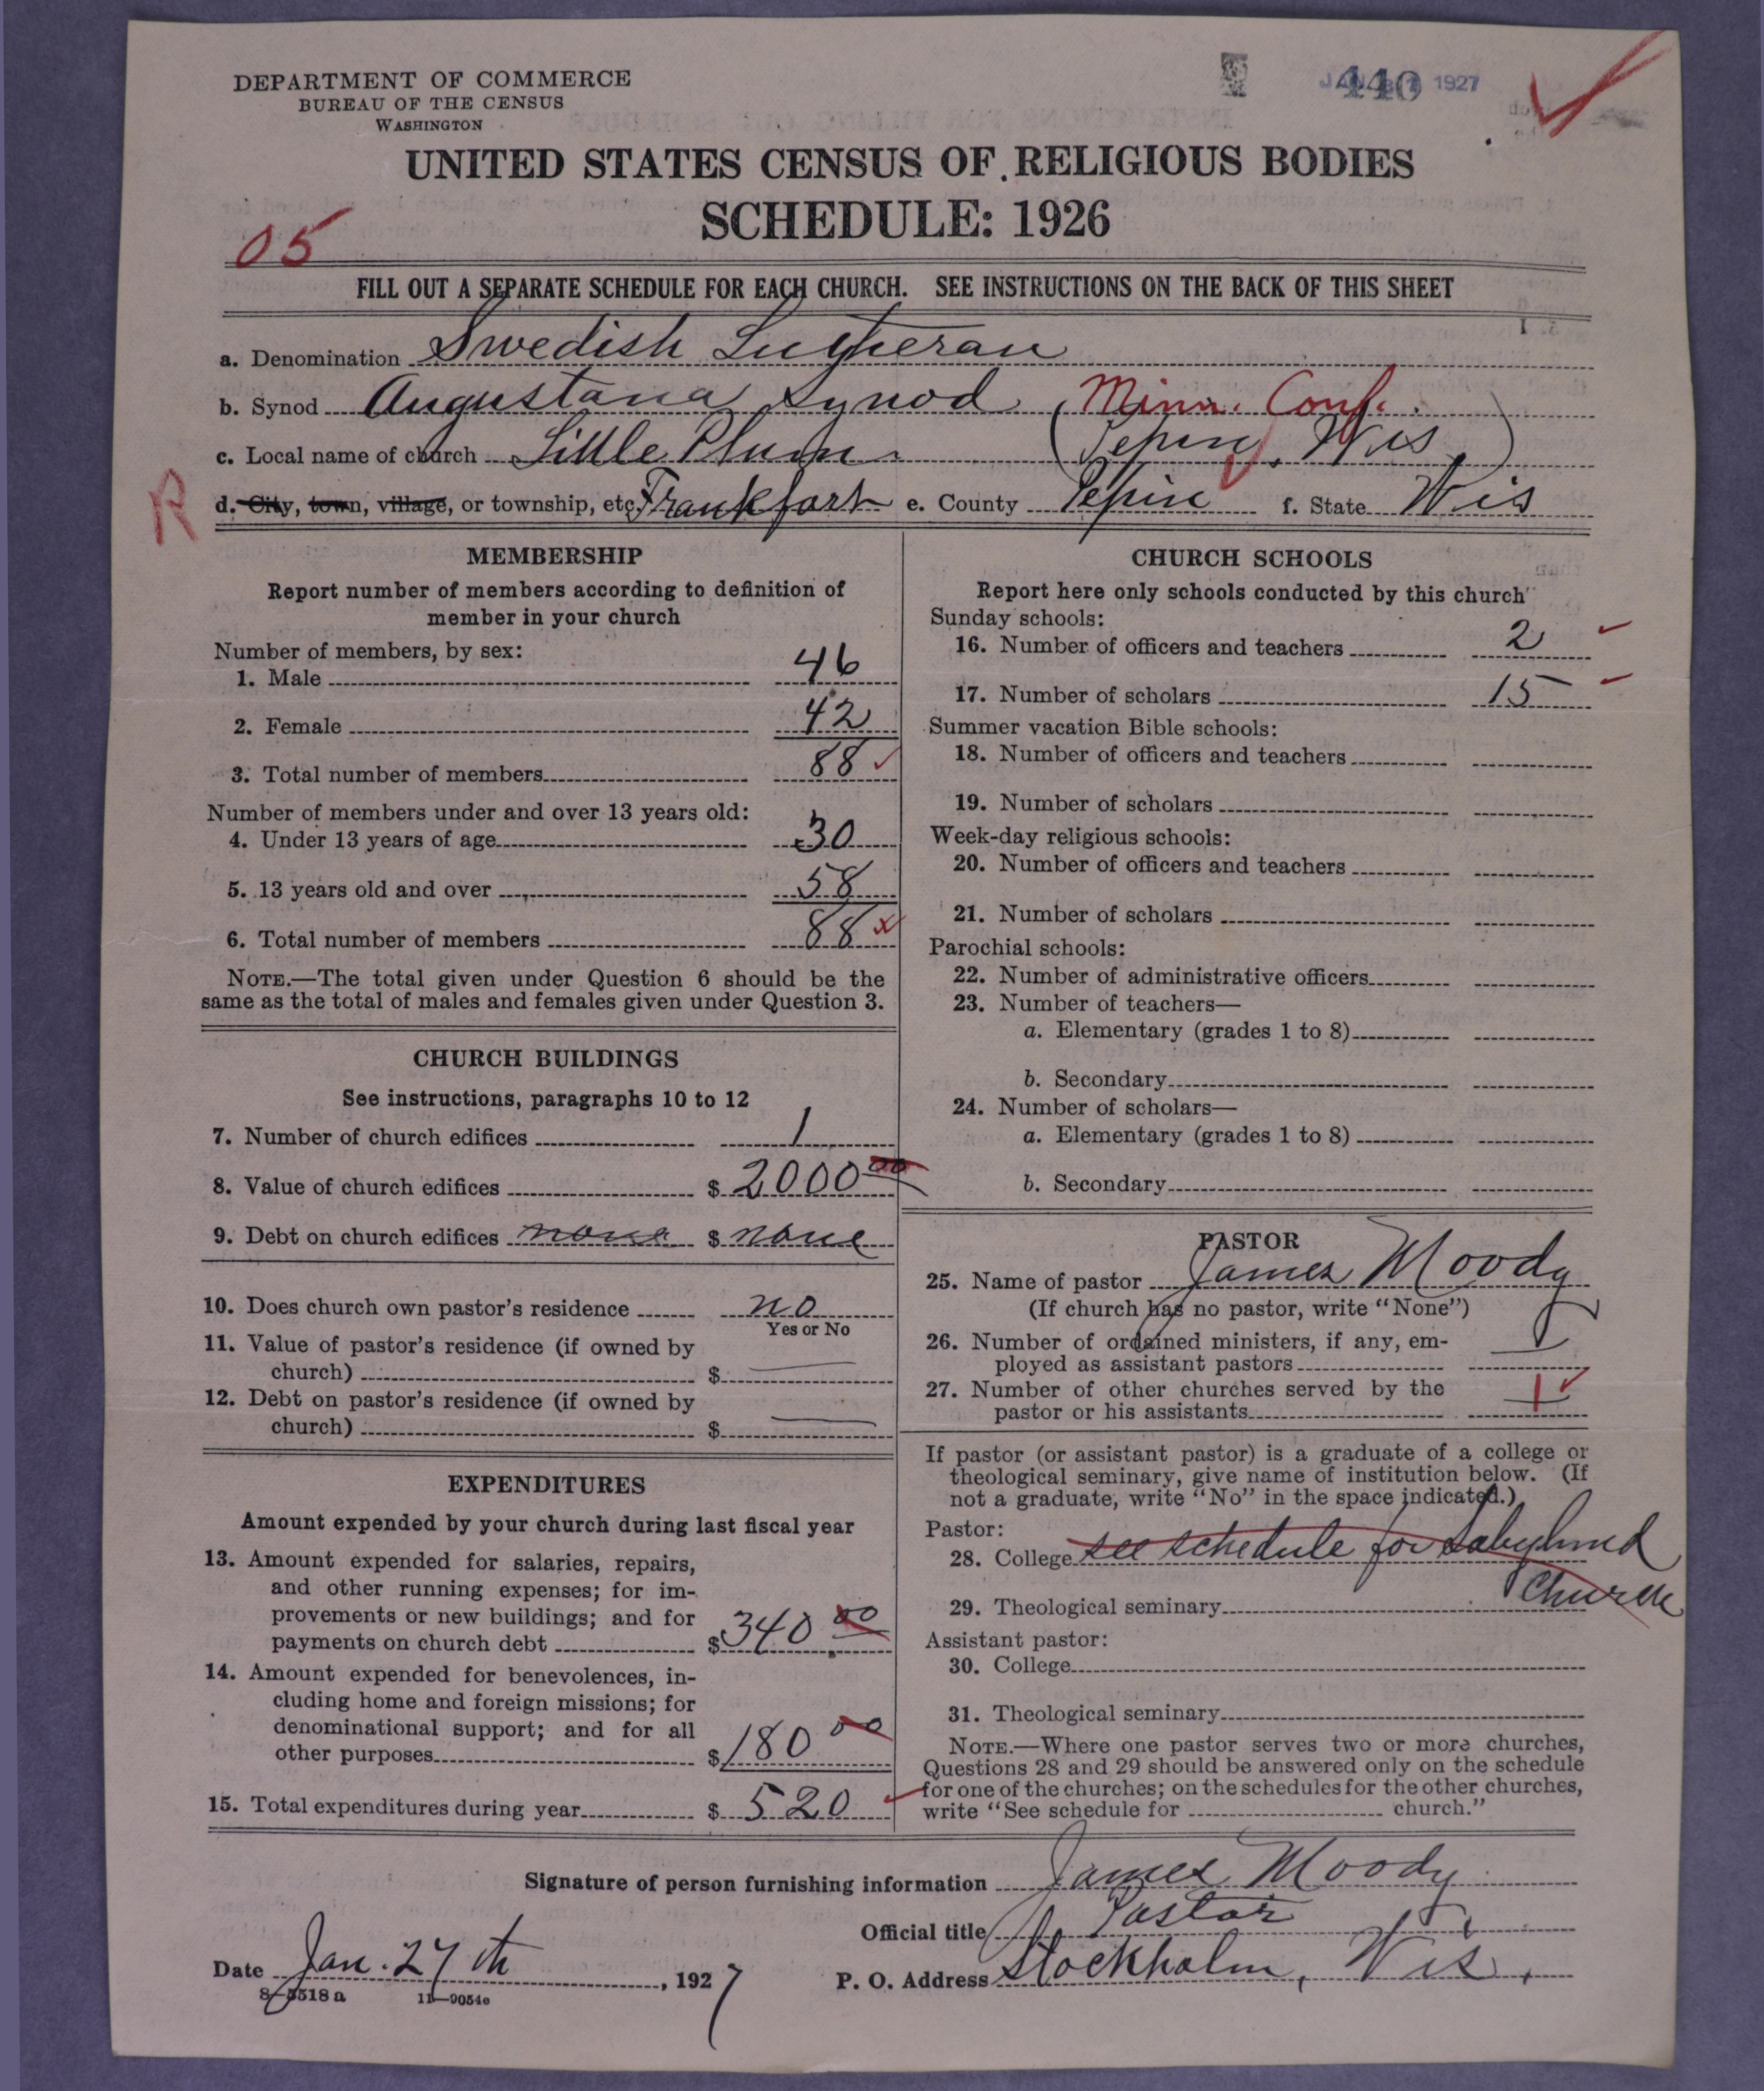 DEPARTMENT OF COMMERCE
BUREAU OF THE CENSUS
WASHINGTON
440
1927
UNITED STATES CENSUS OF RELIGIOUS BODIES
SCHEDULE: 1926
05
FILL OUT A SEPARATE SCHEDULE FOR EACH CHURCH. SEE INSTRUCTIONS ON THE BACK OF THIS SHEET
a. Denomination Swedish Lutheran
b. Synod Augustana Synod Minn. Conf.
c. Local name of church Little Plum (Pepin, Wis)
R
d. City, town, village, or township, etc. Frankfort e. County Pepin f. State Wis
MEMBERSHIP
Report number of members according to definition of
member in your church
Number of members, by sex:
1. Male 46
2. Female 42
3. Total number of members 88
Number of members under and over 13 years old:
4. Under 13 years of age 30
5. 13 years old and over 58
6. Total number of members 88
NOTE.—The total given under Question 6 should be the
same as the total of males and females given under Question 3.
CHURCH BUILDINGS
See instructions, paragraphs 10 to 12
7. Number of church edifices 1
8. Value of church edifices $ 2000 00
9. Debt on church edifices none $ none
10. Does church own pastor's residence no
Yes or No
11. Value of pastor's residence (if owned by
church) $
12. Debt on pastor's residence (if owned by
church) $
EXPENDITURES
Amount expended by your church during last fiscal year
13. Amount expended for salaries, repairs,
and other running expenses; for im-
provements or new buildings; and for
payments on church debt $ 340 00
14. Amount expended for benevolences, in-
cluding home and foreign missions; for
denominational support; and for all
other purposes $ 180 00
15. Total expenditures during year $ 520
CHURCH SCHOOLS
Report here only schools conducted by this church
Sunday schools:
16. Number of officers and teachers 2
17. Number of scholars 15
Summer vacation Bible schools:
18. Number of officers and teachers
19. Number of scholars
Week-day religious schools:
20. Number of officers and teachers
21. Number of scholars
Parochial schools:
22. Number of administrative officers
23. Number of teachers—
a. Elementary (grades 1 to 8)
b. Secondary
24. Number of scholars—
a. Elementary (grades 1 to 8)
b. Secondary
PASTOR
25. Name of pastor James Moody
(If church has no pastor, write "None")
26. Number of ordained ministers, if any, em-
ployed as assistant pastors
27. Number of other churches served by the
pastor or his assistants 1
If pastor (or assistant pastor) is a graduate of a college or
theological seminary, give name of institution below. (If
not a graduate, write "No" in the space indicated.)
Pastor:
28. College see schedule for
Church
29. Theological seminary
Assistant pastor:
30. College
31. Theological seminary
NOTE.—Where one pastor serves two or more churches,
Questions 28 and 29 should be answered only on the schedule
for one of the churches; on the schedules for the other churches,
write "See schedule for church."
Signature of person furnishing information James Moody
Official title Pastor
Date Jan. 27 th, 1927
P. O. Address Stockholm, Wis.
8-5518 a 11-9054e